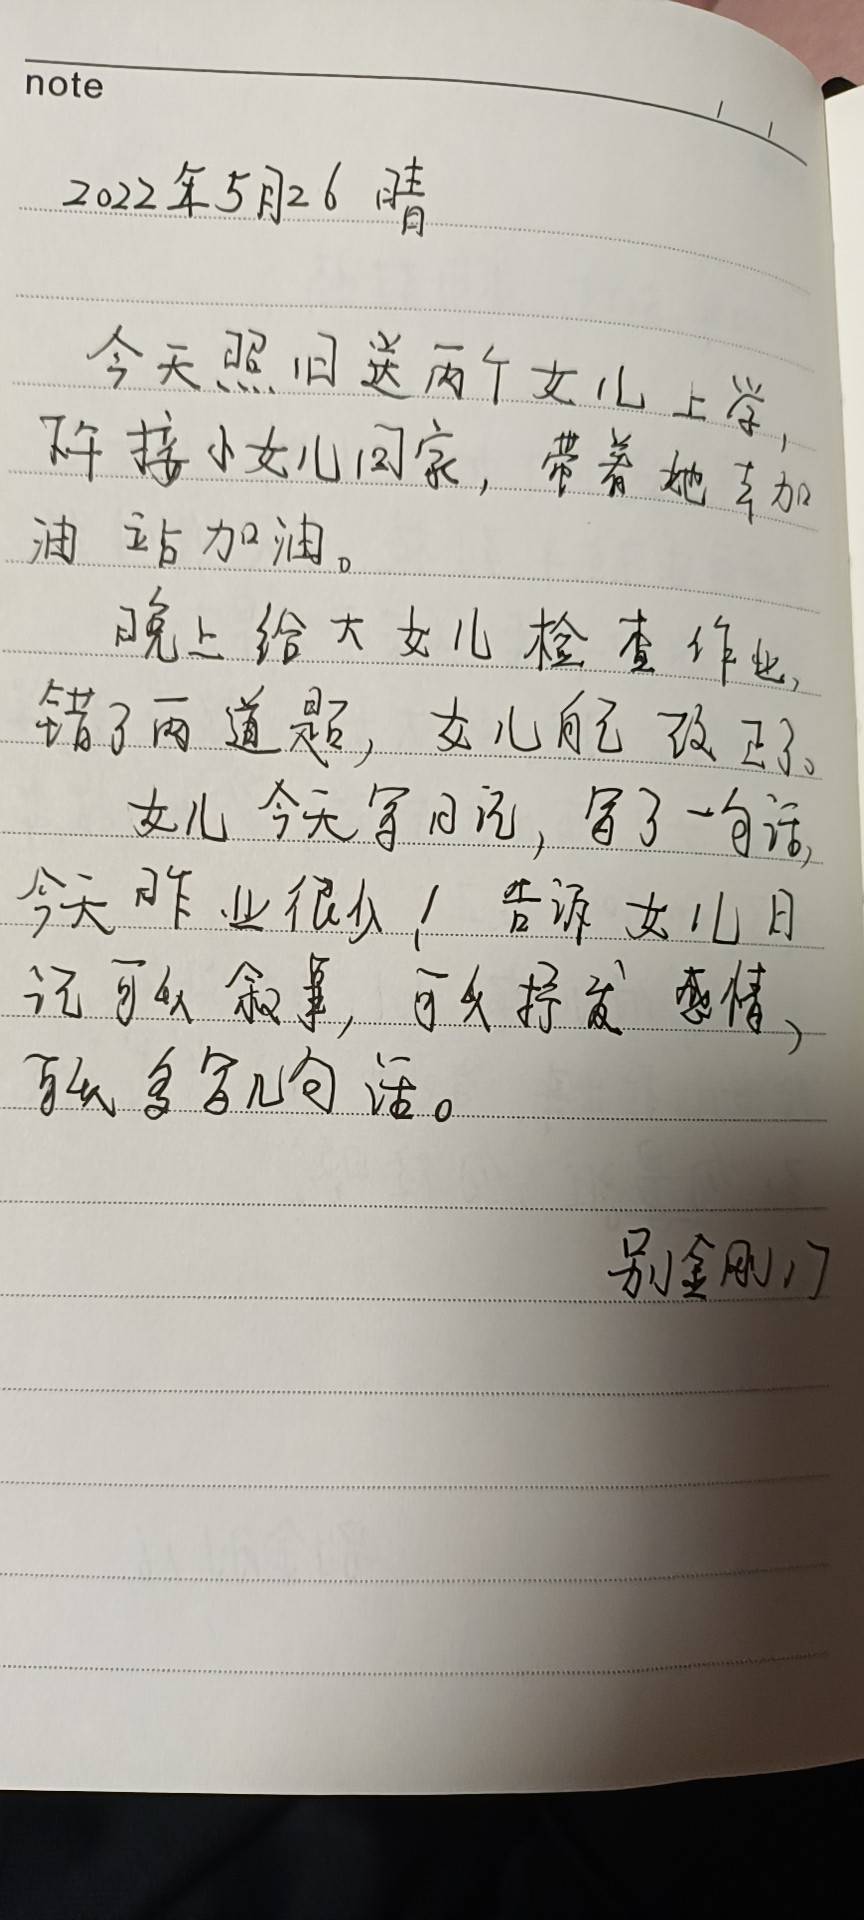 note
2022年5月26 晴
今天照旧送两个女儿上学,
下午接小女儿回家, 带着她去加
油站加油。
晚上给大女儿检查作业,
错了两道题, 女儿自己改正了。
女儿今天写日记, 写了一句话,
今天昨业很少! 告诉女儿日
记可以叙事, 可以抒发感情,
可以多写几句话。
别金刚门